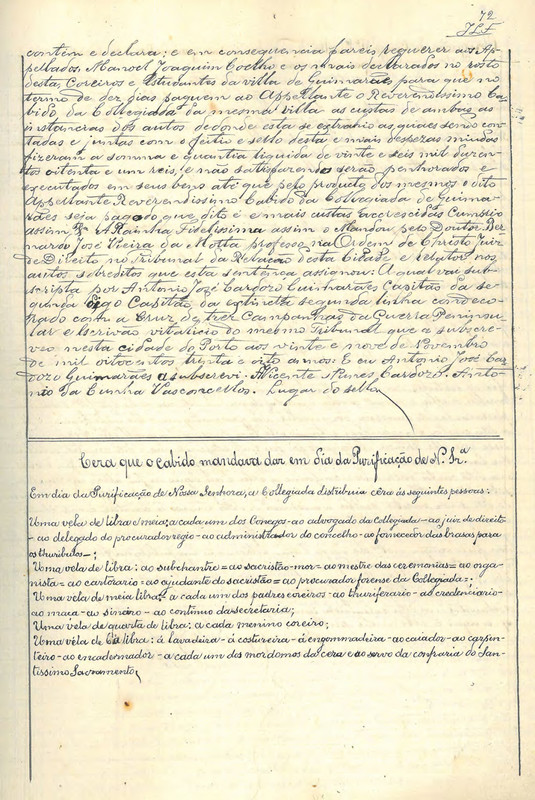 72
JLF
contém e declara: e em consequencia pareis requerer aos Ap-
pellados Manoel Joaquim Coelho e os mais declarados no rosto
desta, Coreiros e Estudantes da villa de Guimarães para que no
termo de dez dias paguem ao Appellante o Reverendissimo Ca-
bido da Collegiada da mesma villa as custas de ambas as
instancias dos autos dedonde esta se extrahio as quaes sendo con-
tadas e juntas com o feitio e sello desta e mais despezas miudas
fizeram a somma e quantia liquida de vinte e seis mil duzen-
tos oitenta e um reis, e não satisfazendo serão penhorados e
executados em seus bens até que pelo producto dos mesmos o dito
Appellante Reverendissimo Cabido da Collegiada de Guima-
rães seja pago do que dito é e mais custas accrescidas Cumprio
assim A Rainha Fidelissima assim o Mandou pelo Doutor Ber-
nardo José Vieira da Motta professo na Ordem de Christo Juiz
de Direito no Tribunal da Relação desta Cidade e relator nos
autos sobreditos que esta sentença assignou: A qual vai sub-
scripta por Antonio José Cardozo Guimarães Capitão da se-
gunda digo Capitão da extincta segunda linha condeco-
rado com a Cruz de tres Campanhas da Guerra Peninsu-
lar e Escrivão vitalicio do mesmo Tribunal que a subscre-
veo nesta cidade do Porto aos vinte e nove de Novembro
de mil oitocentos trinta e oito annos. E eu Antonio José Car-
dozo Guimarães a subscrevi. Vicente Nunes Cardozo. Anto-
nio da Cunha Vasconcellos. Lugar do sello
Cera que o cabido mandava dar em dia da Purificação de N. Sr.ª
Em dia da Purificação de Nossa Senhora, a Collegiada distribuia cêra ás seguintes pessoas:
Uma vela de libra e meia: a cada um dos Conegos - ao advogado da Collegiada - ao juiz de direito -
- ao delegado do procurador regio - ao administrador do concelho - ao fornecedor das brasas para
os thuribulos -;
Uma vela de libra: ao subchantre = ao sacristão-mor = ao mestre das ceremonias = ao orga-
nista = ao cartorario - ao ajudante do sacristão = ao procurador forense da Collegiada =;
Uma vela de meia libra: a cada um dos padres coreiros - ao thuriferario - ao credenciario -
ao maça - ao sineiro - ao continuo da secretaria;
Uma vela de quarta de libra: a cada menino coreiro;
Uma vela de libra: á lavadeira - á costureira - á engommadeira - ao caiador - ao carpin-
teiro - ao encadernador - a cada um dos mordomos da cera e ao servo da confraria do San-
tissimo Sacramento,